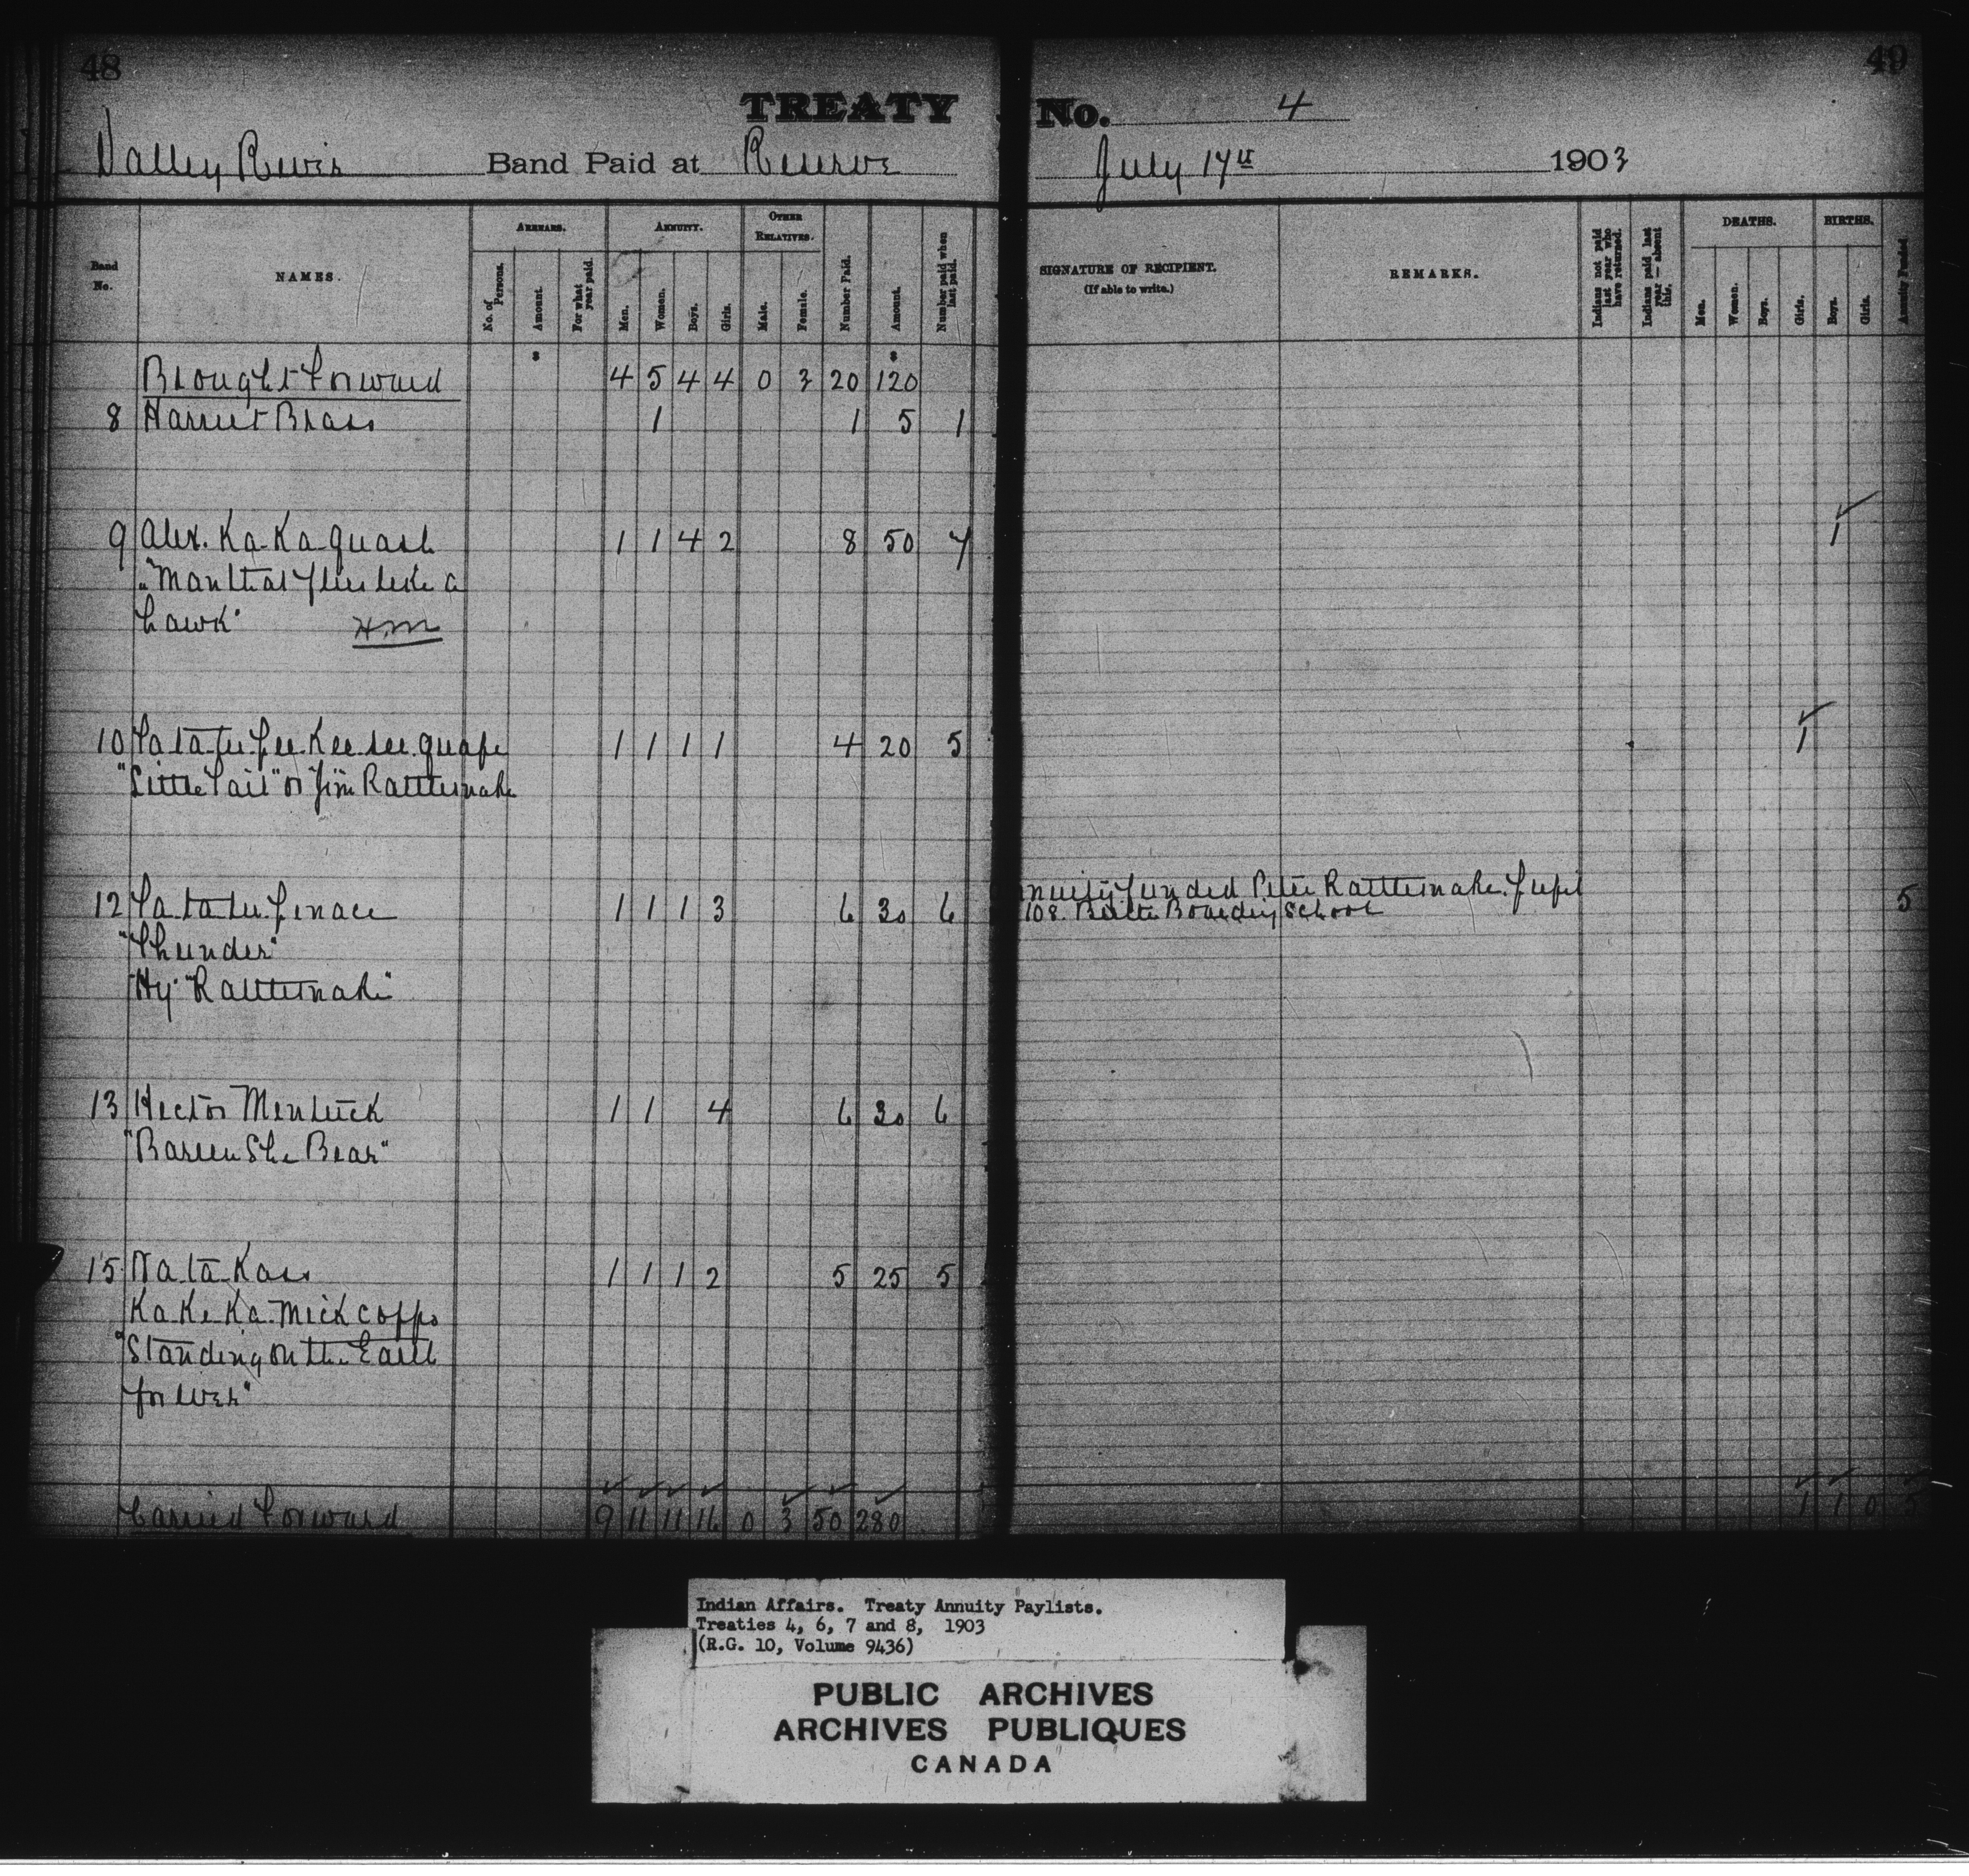 48
49
TREATY No. 4
Valley River Band Paid at Reserve July 17th 1903
Band No.
NAMES.
ARREARS.
No. of Persons.
Amount.
For what year paid.
ANNUITY.
Men.
Women.
Boys.
Girls.
OTHER RELATIVES.
Male.
Female.
Number Paid.
Amount.
Number paid when last paid.
SIGNATURE OF RECIPIENT.
(If able to write.)
REMARKS.
Indians not paid last year who have returned.
Indians paid last year — absent this.
DEATHS.
Men.
Women.
Boys.
Girls.
BIRTHS.
Boys.
Girls.
Annuity Funded.
$ $
Brought Forward 4 5 4 4 0 3 20 120
8 Harriet Brass 1 1 5 1
9 Alex. Ka-Ka-quash 1 1 4 2 8 50 7 1
"Man that flies like a
hawk"
10 1 1 1 1 4 20 5 1
"Little Tail" or "Jim Rattlesnake
12 1 1 1 3 6 30 6 nnuity funded Peter Rattlesnake. pupil 5
108. Boarding School
"Thunder"
"Hy" Rattlesnake"
13 Hector Mentuck 1 1 4 6 30 6
"Barren She Bear"
15 Na-ta-Kass 1 1 1 2 5 25 5
Ka Ke Ka-Mick copps
"Standing on the Earth
for ever"
Carried Forward 9 11 11 16 0 3 50 280 1 1 0 5
Indian Affairs. Treaty Annuity Paylists.
Treaties 4, 6, 7 and 8, 1903
(R.G. 10, Volume 9436)
PUBLIC ARCHIVES
ARCHIVES PUBLIQUES
CANADA